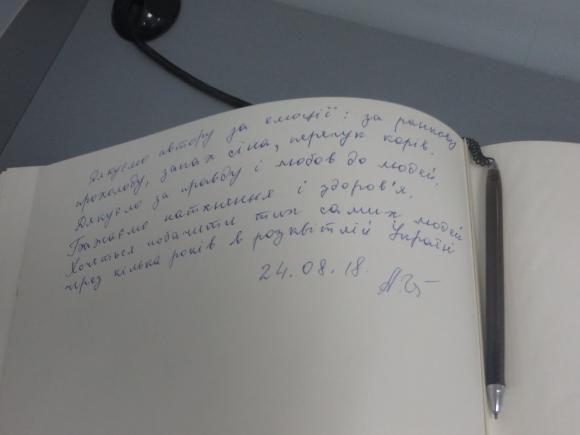 Дякуємо автору за емоції: за ранкову
прохолоду, запах сіна, перегук корів.
Дякуємо за правду і любов до людей.
Бажаємо натхнення і здоров'я.
Хочеться побачити тих самих людей
через кілька років в розквітлій Україні
24.08.18.